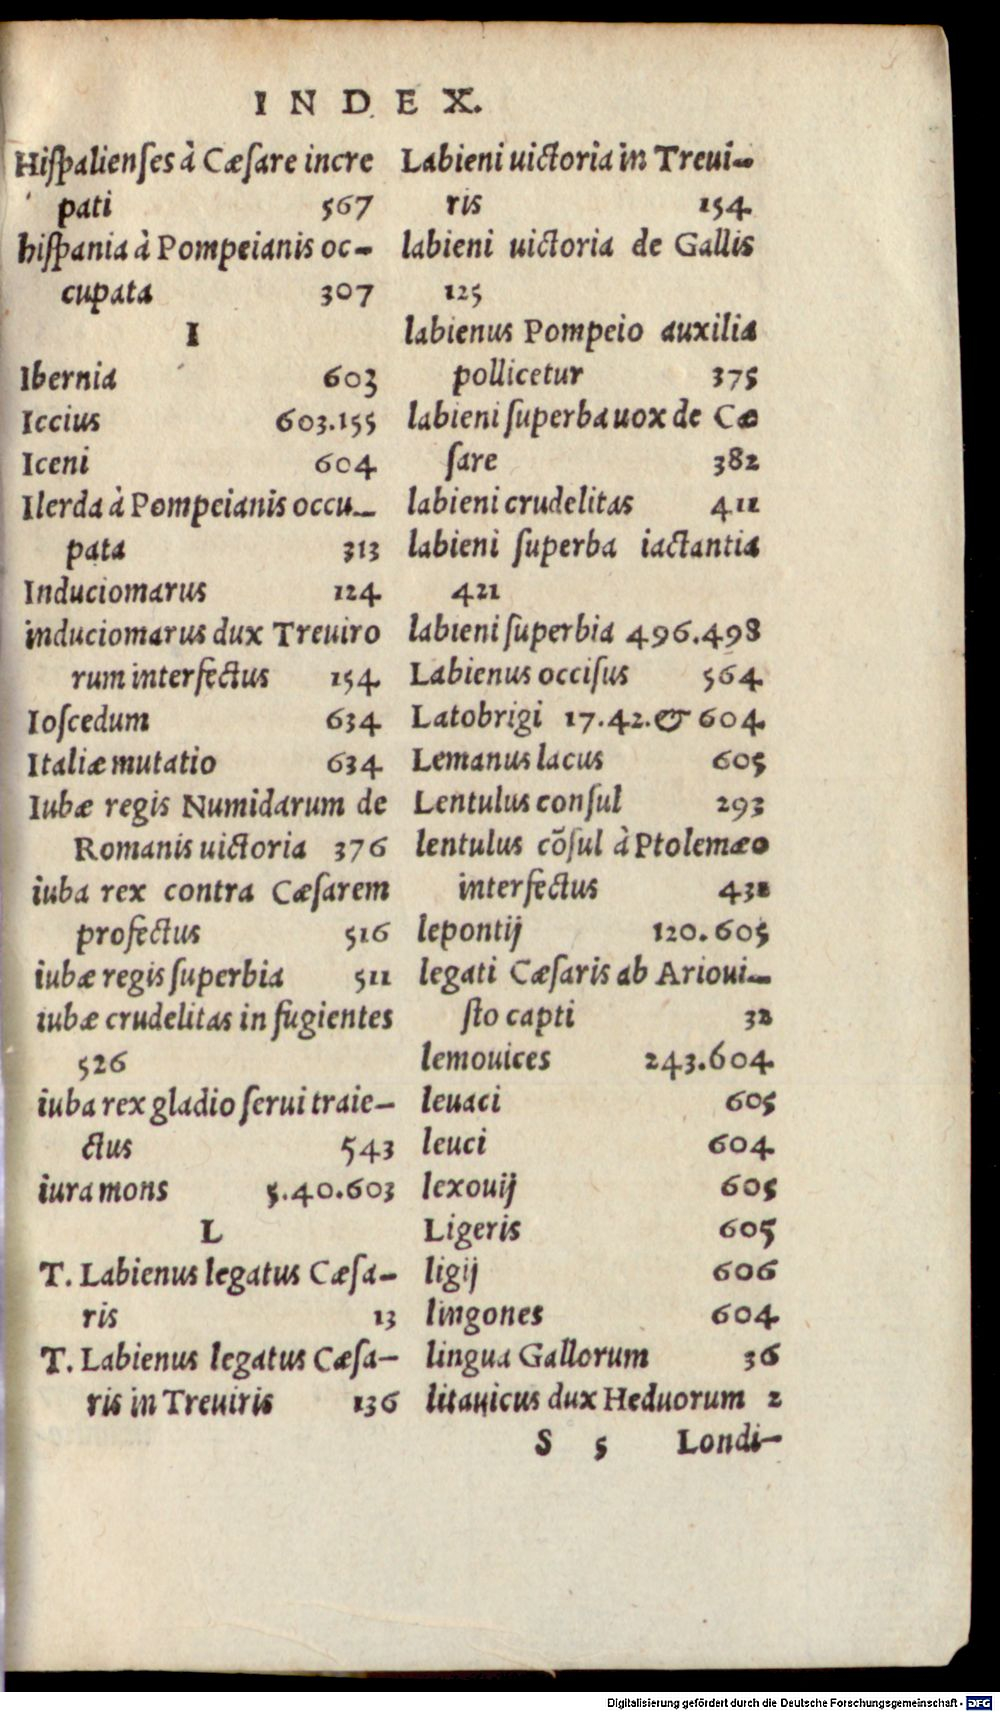 INDEX.
Hiſpalienſes à Cæſare incre
pati 567
hiſpania à Pompeianis oc-
cupata 307
I
Ibernia 603
Iccius 603.155
Iceni 604
Ilerda à Pompeianis occu-
pata 313
Induciomarus 124
induciomarus dux Treuiro
rum interfectus 154
Ioſcedum 634
Italiæ mutatio 634
Iubæ regis Numidarum de
Romanis uictoria 376
iuba rex contra Cæſarem
profectus 516
iubæ regis ſuperbia 511
iubæ crudelitas in fugientes
526
iuba rex gladio ſerui traie-
ctus 543
iura mons 5.40.603
L
T. Labienus legatus Cæſa-
ris 13
T. Labienus legatus Cæſa-
ris in Treuiris 136
Labieni uictoria in Treui-
ris 154
labieni uictoria de Gallis
125
labienus Pompeio auxilia
pollicetur 375
labieni ſuperba uox de Cæ
ſare 382
labieni crudelitas 411
labieni ſuperba iactantia
421
labieni ſuperbia 496.498
Labienus occiſus 564
Latobrigi 17.42.& 604
Lemanus lacus 605
Lentulus conſul 293
lentulus cõſul à Ptolemæo
interfectus 432
lepontij 120.605
legati Cæſaris ab Arioui-
ſto capti 32
lemouices 243.604
leuaci 605
leuci 604
lexouij 605
Ligeris 605
ligij 606
lingones 604
lingua Gallorum 36
litauicus dux Heduorum 2
S 5 Londi-
Digitalisierung gefördert durch die Deutsche Forschungsgemeinschaft - DFG